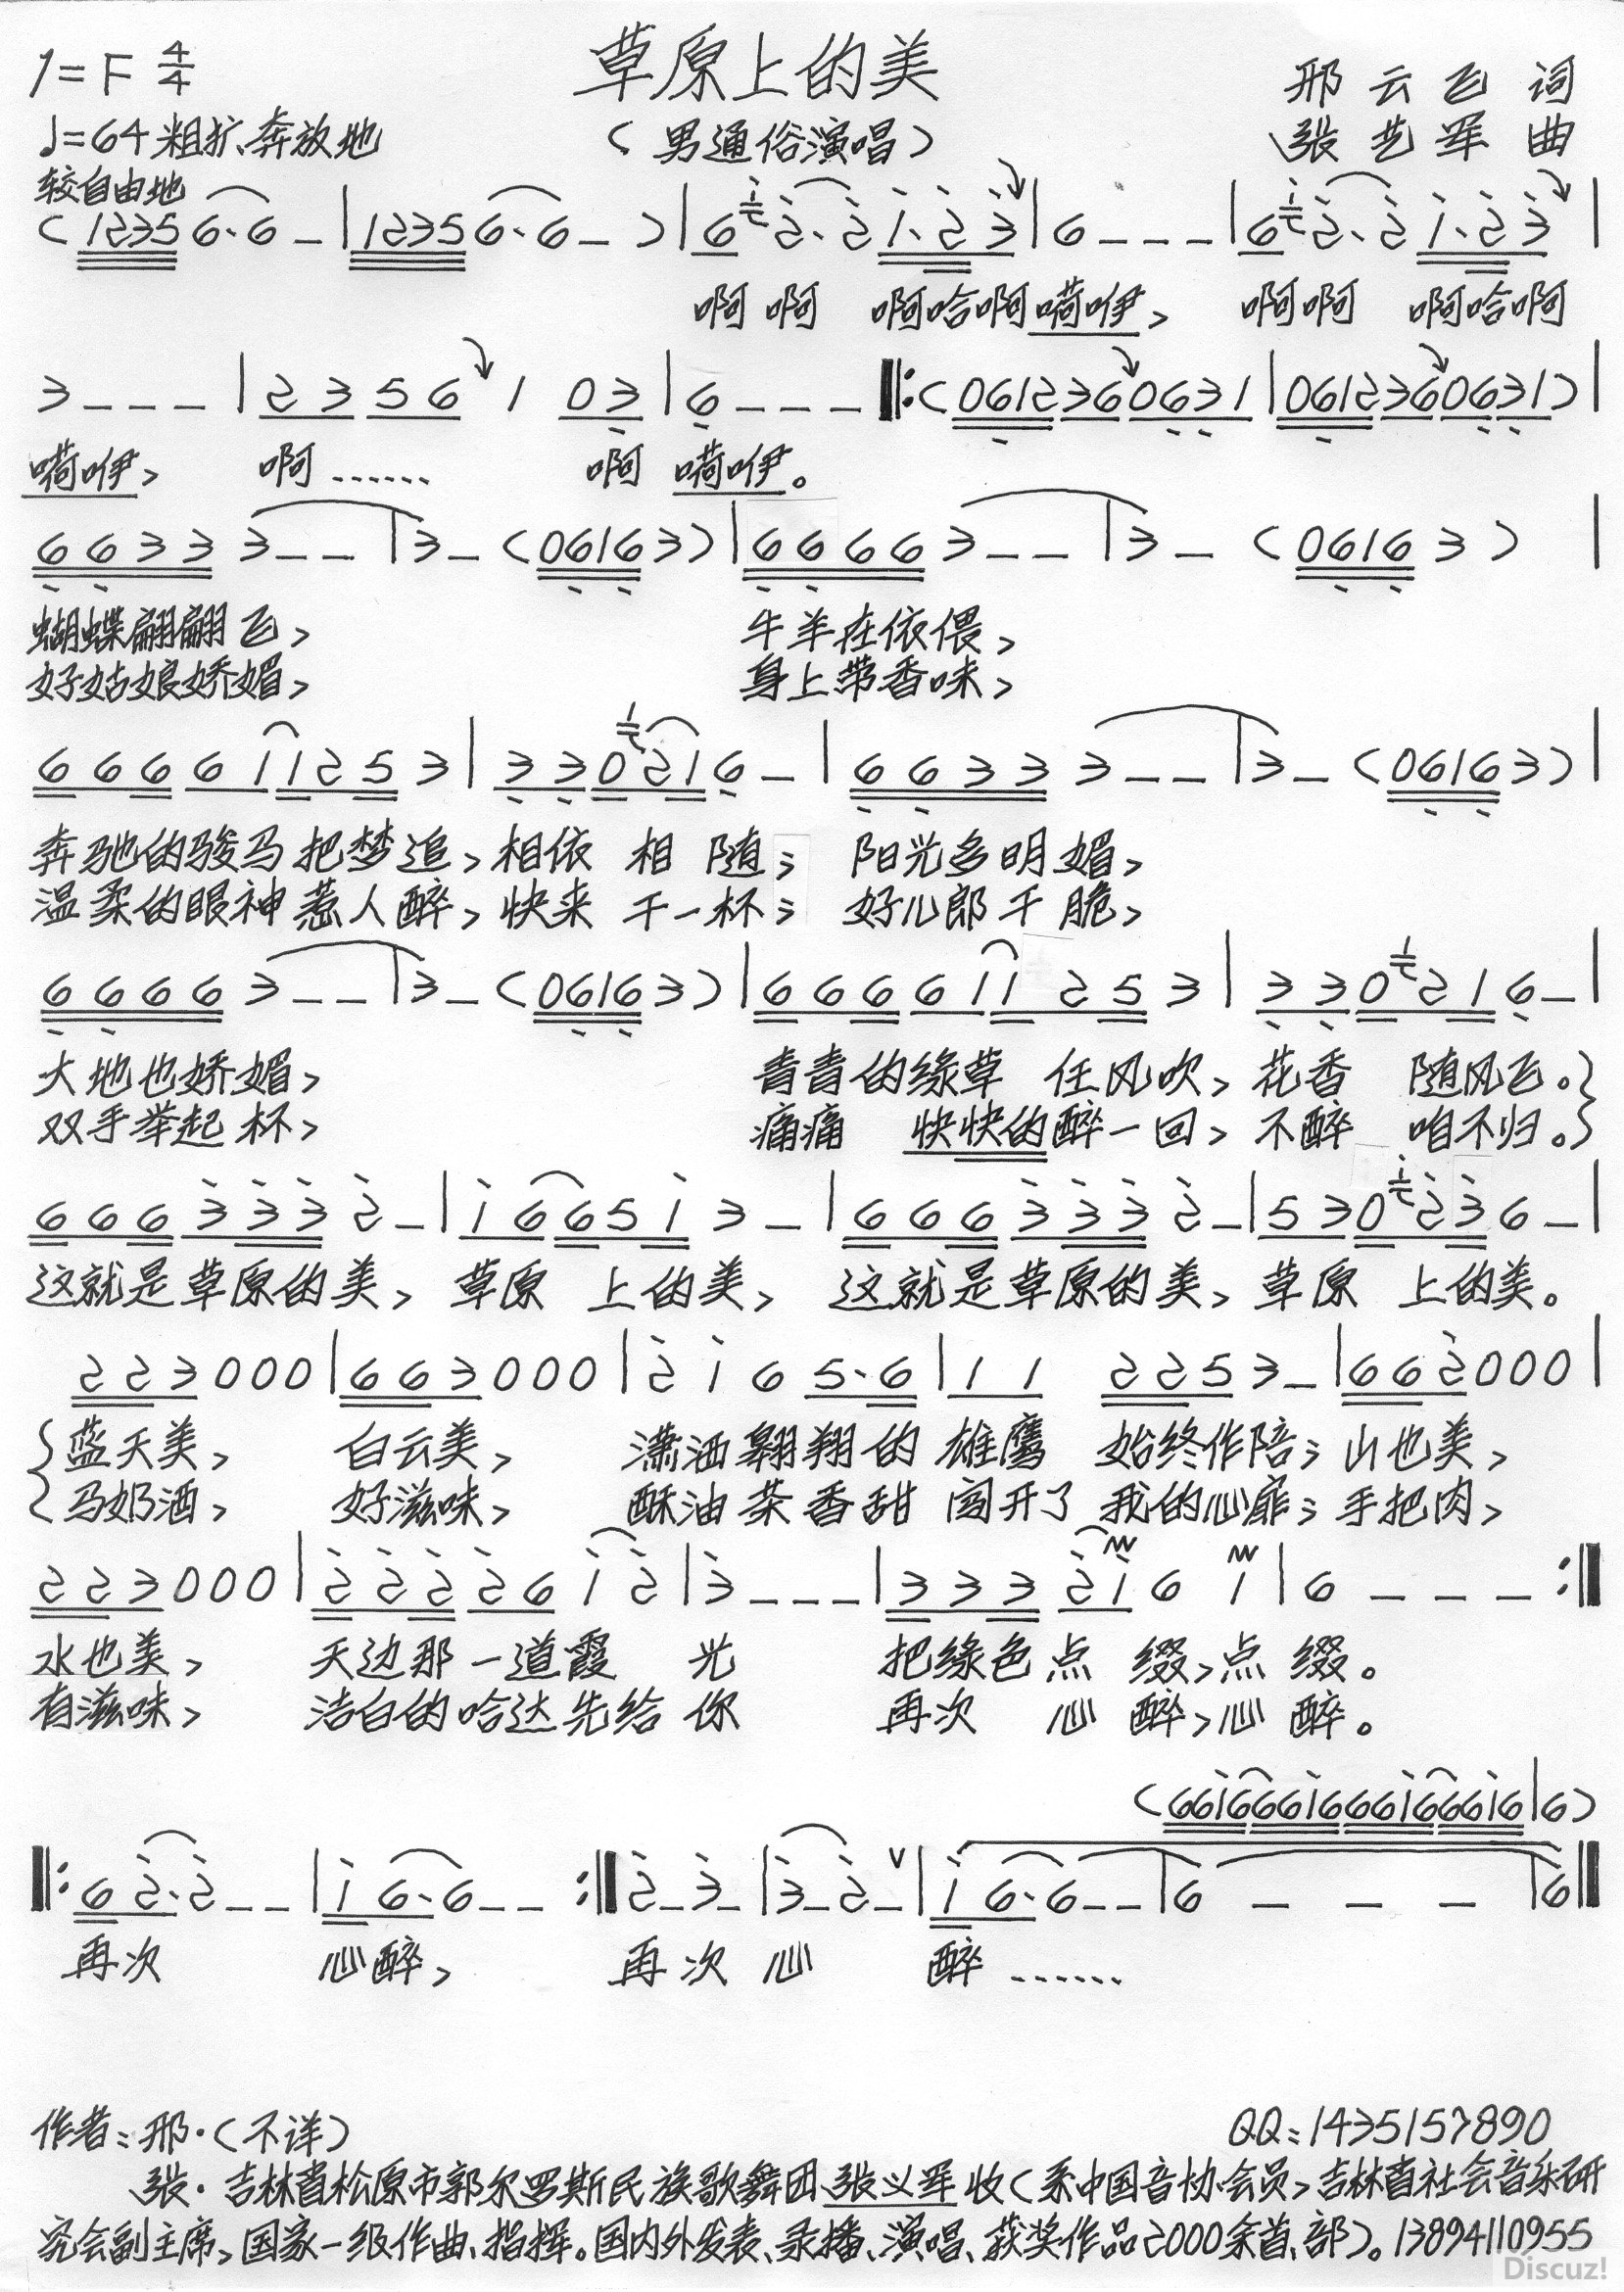 1=F 4/4
草原上的美
邢云飞 词
♩=64 粗犷、奔放地
（男通俗演唱）
张艺军 曲
较自由地
(1235 6·6 - | 1235 6·6 - ) | 6 2·2 1·2 3 | 6 - - - | 6 2·2 1·2 3 |
啊啊 啊哈啊嗬咿， 啊啊 啊哈啊
3 - - - | 2 3 5 6 1 0 3 | 6 - - - ‖: (0612360631 | 0612360631) |
嗬咿， 啊…… 啊 嗬咿。
6 6 3 3 3 - - | 3 - (06163) | 6 6 6 6 3 - - | 3 - (06163) |
蝴蝶翩翩飞， 牛羊在依偎，
好姑娘娇媚， 身上带香味，
6 6 6 6 1 1 2 5 3 | 3 3 0 2 1 6 - | 6 6 3 3 3 - - | 3 - (06163) |
奔驰的骏马把梦追，相依 相 随； 阳光多明媚，
温柔的眼神惹人醉，快来 干一杯； 好儿郎干脆，
6 6 6 6 3 - - | 3 - (06163) | 6 6 6 6 1 1 2 5 3 | 3 3 0 2 1 6 - |
大地也娇媚， 青青的绿草 任风吹，花香 随风飞。
双手举起杯， 痛痛 快快的醉一回，不醉 咱不归。
6 6 6 3 3 3 2 - | 1 6 6 5 1 3 - | 6 6 6 3 3 3 2 - | 5 3 0 2 3 6 - |
这就是草原的美，草原 上的美，这就是草原的美，草原 上的美。
2 2 3 0 0 0 | 6 6 3 0 0 0 | 2 1 6 5·6 | 1 1 2 2 5 3 - | 6 6 2 0 0 0 |
蓝天美， 白云美， 潇洒翱翔的 雄鹰 始终作陪；山也美，
马奶酒， 好滋味， 酥油茶香甜 闯开了 我的心扉；手把肉，
2 2 3 0 0 0 | 2 2 2 2 6 1 2 | 3 - - - | 3 3 3 2 1 6 1 | 6 - - - :‖
水也美， 天边那一道霞 光 把绿色点 缀，点 缀。
有滋味， 洁白的哈达先给 你 再次 心 醉，心 醉。
(6616661666166616 | 6)
‖: 6 2·2 - - | 1 6·6 - - :‖ 2 - 3 - | 3 - 2 - | 1 6·6 - - | 6 - - - | 6 ‖
再次 心醉， 再次 心 醉……
作者：邢·（不详）
QQ：1435157890
张·吉林省松原市郭尔罗斯民族歌舞团张义军收（系中国音协会员，吉林省社会音乐研
究会副主席，国家一级作曲、指挥。国内外发表、录播、演唱、获奖作品2000余首、部）。13894110955
Discuz!